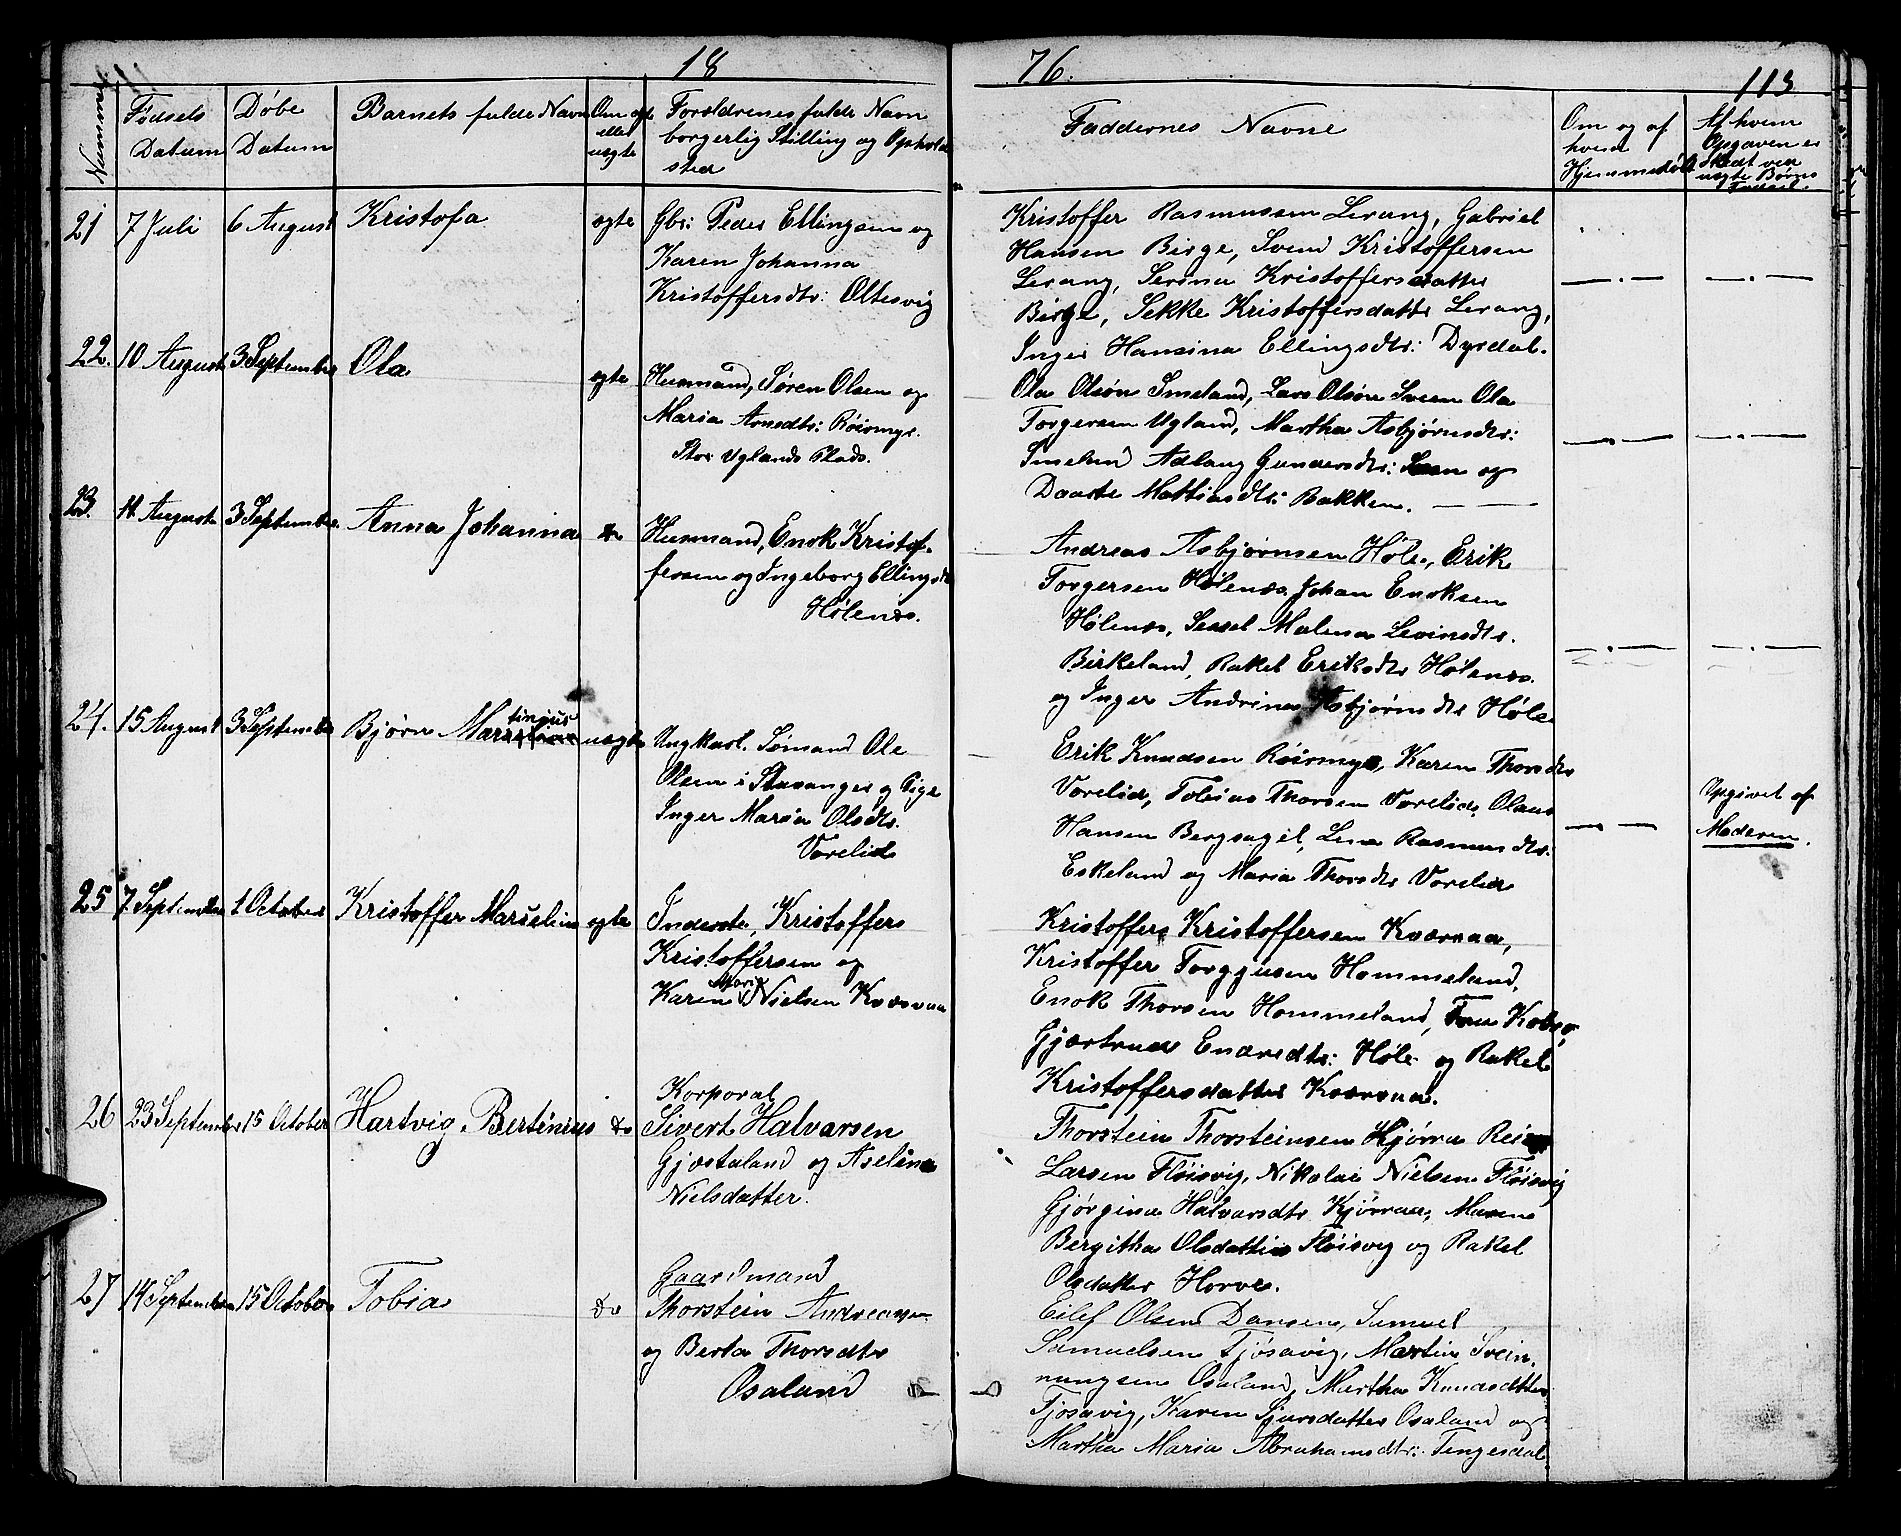 18 76.
113
Nummer
Fødsels Datum
Døbe Datum
Barnets fulde Navn
Om ægte eller uægte
Forældrenes fulde Navn
borgerlig Stilling og Opholds
sted
Faddernes Navne
Om og af
hvem
Hjemmedøbt
Af hvem
Opgaven er
skedt ved
uægte Børns
Fødsel
21 7 Juli 6 August Kristofa ægte
Gbr: Peder Ellingsen og
Karen Johanna
Kristoffersdtr: Oltesvig
Kristoffer Rasmussen Lerang, Gabriel
Hansen Birge, Svend Kristoffersen
Lerang, Serina Kristoffersdatter
Birge, Sekke Kristoffersdatter Lerang,
Inger Hansina Ellingsdtr: Dyrdal.
22. 10 August 3 September Ola ægte
Husmand, Søren Olsen og
Maria Arnedtr: Røirmye.
Stor Uglands Plads.
Ola Olsøn Imeland, Lars Olsøn Sveen Ola
Torgersen Ugland, Martha Asbjørnsdtr:
Imeland Adlaug Gundersdtr: og
Daarte Mathiasdtr: Bakken.
23. 11 August 3 September Anna Johanna do
Husmand, Enok Kristof-
fersen og Ingeborg Ellingsdtr
Hølenæs.
Andreas Asbjørnsen Høle, Erik
Torgersen Hølenæs Johan Enoksen
Hølenæs, Sessel Malena Levinsdtr.
Birkeland, Rakel Eriksdtr Hølenæs.
og Inger Andrina Asbjørnsdtr Høle
24. 15 August 3 September Bjørn Martinius uægte
Ungkarl. Sømand Ole
Olsen i Stavanger og Pige
Inger Maria Olsdtr.
Vorelid
Erik Knudsen Røirmye, Karen Thorsdtr
Vorelid, Tobias Thorsen Vorelid, Olaus
Hansen Bergsagel, Lina Rasmusdtr:
Eskeland og Maria Thorsdtr Vorelid
Opgivet af
Moderen.
25 7 September 1 October Kristoffer Marselius ægte
Inderste, Kristoffers
Kristoffersen og
Karen Marie Nielsen Kværnaa
Kristoffers Kristoffersen Kværnaa,
Kristoffer Torggusen Hommeland,
Enok Thorsen Hommeland, Kobro,
Gjærtrude Endredtr: Høle og Rakel
Kristoffersdatter Kværnaa.
26 23 September 15 October Hartvig Bertinius do
Korporal
Sivert Halvarsen
Gjæstaland og Aselina
Nielsdatter.
Thorstein Thorsteinsen Kjørra
Larsen Fløisvig, Nikolai Nielsen Fløisvig
Gjørgina Halvarsdtr Kjørraa, Maren
Bergitha Olsdatter Fløisvig og Rakel
Olsdatter Horve.
27 14 September 15 October Tobia do
Gaardmand
Thorstein Andreasen
og Berta Thorsdtr
Osaland
Eilef Olsen Dansen, Samuel
Samuelsen Tjøsavig, Martin Svein-
nungsen Osaland, Martha Knudsdatter
Tjøsavig, Karen Sjursdatter Osaland og
Martha Maria Abrahamsdtr: Tengesdal.